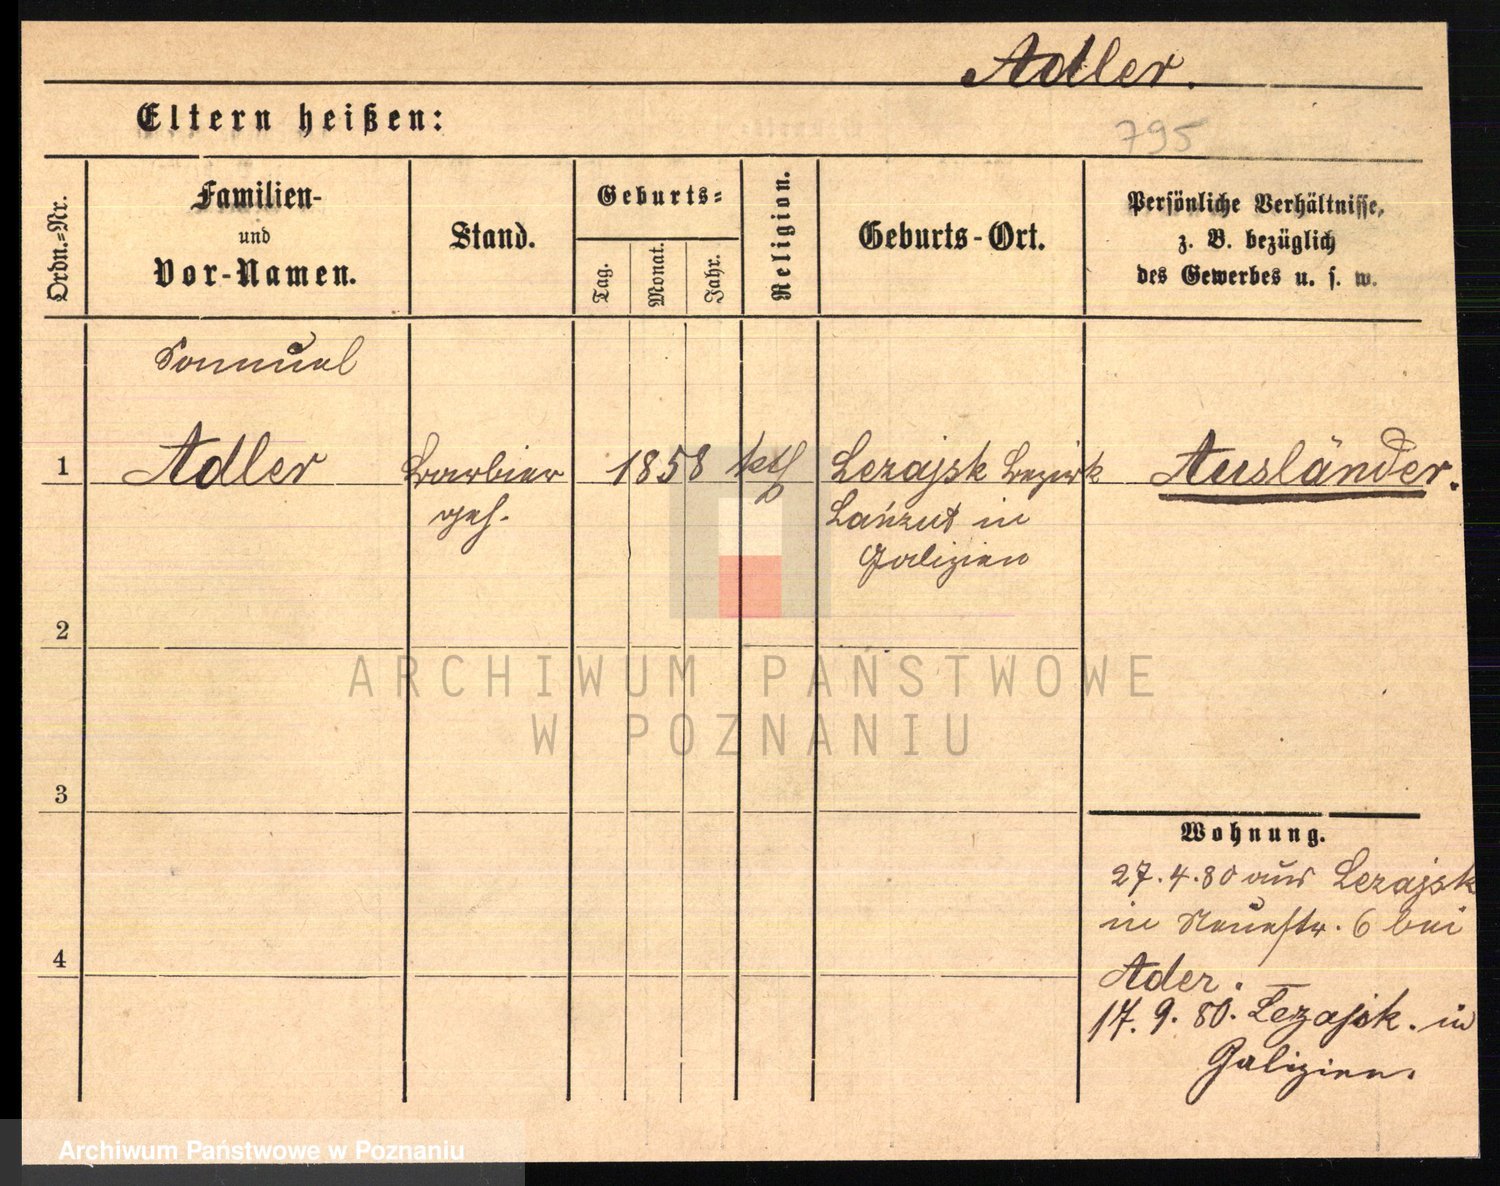 Adler.
Eltern heißen:
795
Ordn.-Nr.
Familien-
und
Vor-Namen.
Stand.
Geburts-
Tag.
Monat.
Jahr.
Religion.
Geburts-Ort.
Persönliche Verhältnisse,
z. B. bezüglich
des Gewerbes u. s. w.
Samuel
1
Adler
Barbier
geh.
1858
kth
Lezajsk Bezirk
Lanzut in
Galizien
Ausländer.
2
ARCHIWUM PAŃSTWOWE
W POZNANIU
3
Wohnung.
27.4.80 aus Lezajsk
in Neuestr. 6 bei
Ader.
17.9.80. Lezajsk. in
Galizien.
4
Archiwum Państwowe w Poznaniu